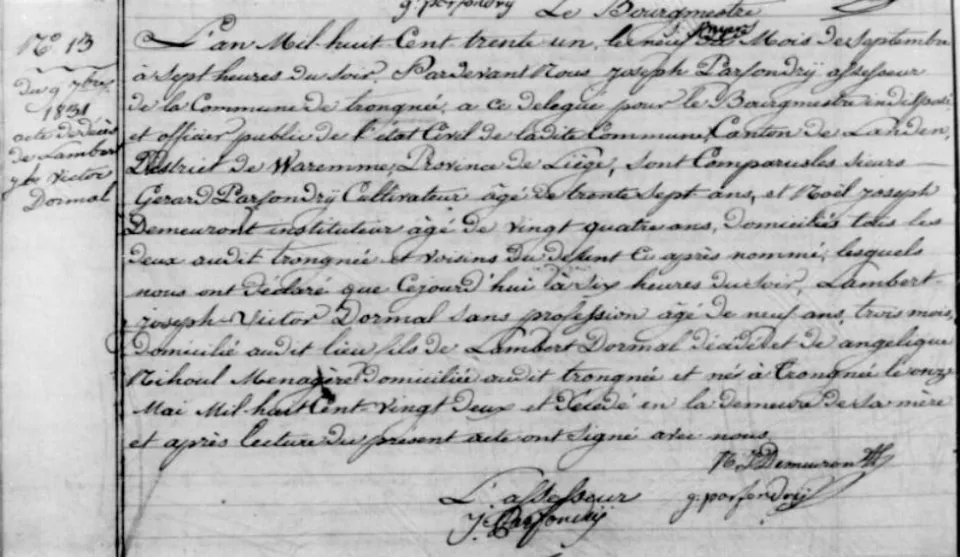 g. parfondrÿ
Le Bourgmestre
No. 13
du 9 7bre
1831
acte de décès
de Lambert
jph Victor
Dormal
L'an Mil-huit-Cent-trente un, le neuf du Mois de Septembre
à Sept heures du soir, Pardevant Nous Joseph Parfondrÿ assesseur
de la Commune de trongnée, a ce delegué pour le Bourgmestre indisposé
et officier public de l'état Civil de ladite Commune, Canton de Landen,
District de Waremme, Province de Liége, sont Comparus les sieurs
Gerard Parfondrÿ Cultivateur âgé de trente sept ans, et Noël joseph
Demeuront instituteur âgé de vingt quatre ans, domiciliés tous les
deux audit trongnée et voisins du defunt Ci après nommé, lesquels
nous ont déclaré que Cejourd'hui à Six heures du soir, Lambert-
joseph-Victor Dormal Sans profession âgé de neuf ans, trois mois,
domicilié audit lieu fils de Lambert Dormal décédé et de angelique
Nihoul Menagère domiciliée audit trongnée et né à trongnée le onze
Mai Mil-huit Cent-vingt deux et décédé en la demeure de sa mère
et après lecture du présent acte ont signé avec nous.
N J Demeuront
L'assesseur
g. parfondrÿ
J. Parfondrÿ